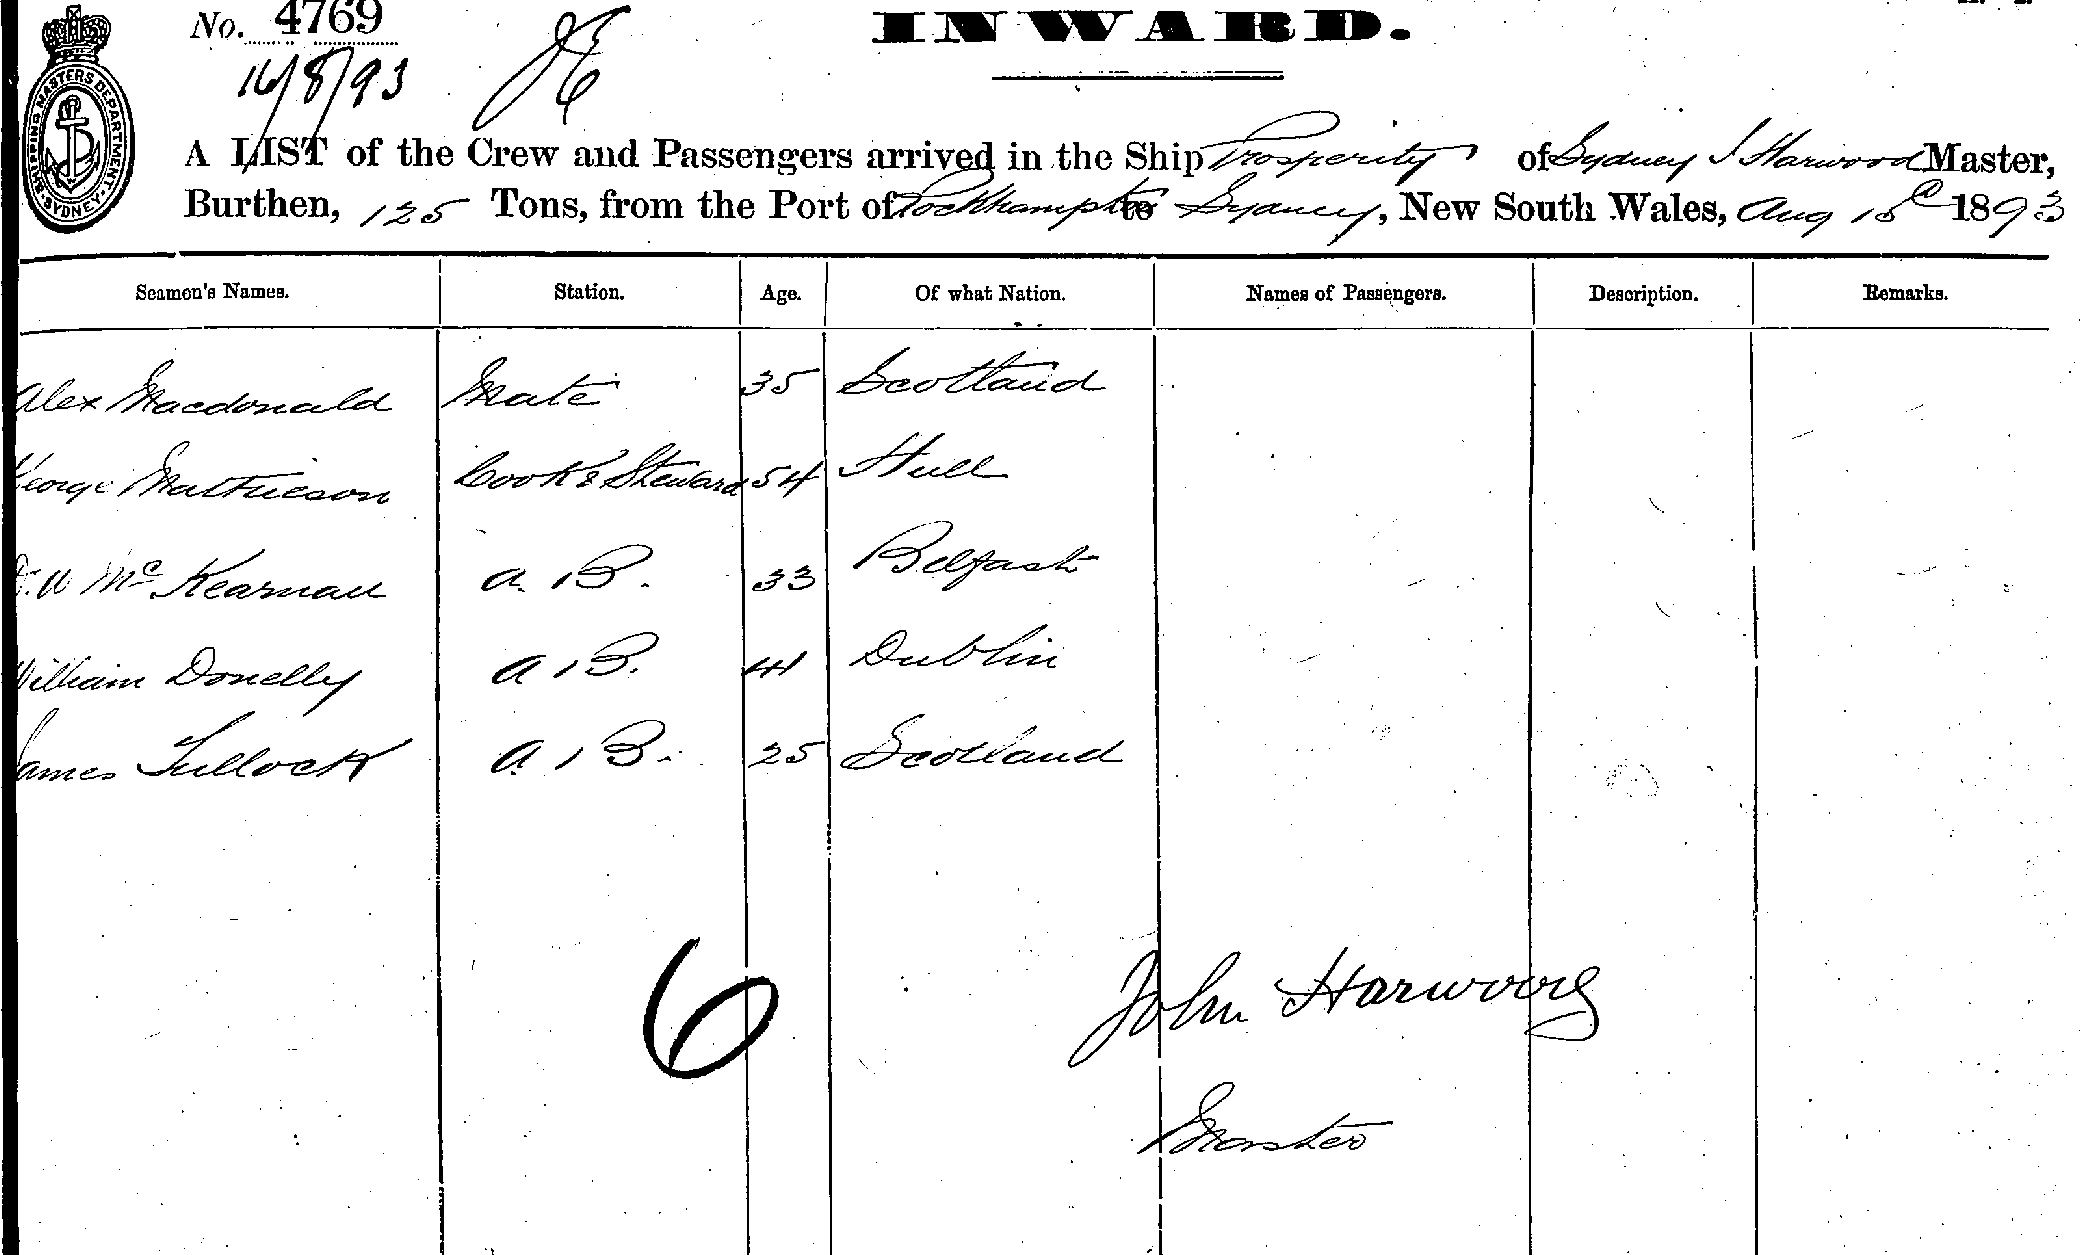 No. 4769
INWARD.
16/8/93
SHIPPING MASTERS DEPARTMENT. SYDNEY.
A LIST of the Crew and Passengers arrived in the Ship Prosperity of Sydney J Harwood Master,
Burthen, 125 Tons, from the Port of Rockhampton to Sydney, New South Wales, Aug 1893
Seamen's Names. Station. Age. Of what Nation. Names of Passengers. Description. Remarks.
Alex Macdonald Mate 35 Scotland
George Mathieson Cook & Steward 54 Hull
Mc Kearnan A.B. 33 Belfast
William Donelly A.B. 41 Dublin
James Tullock A.B. 25 Scotland
6
John Harwood
Master